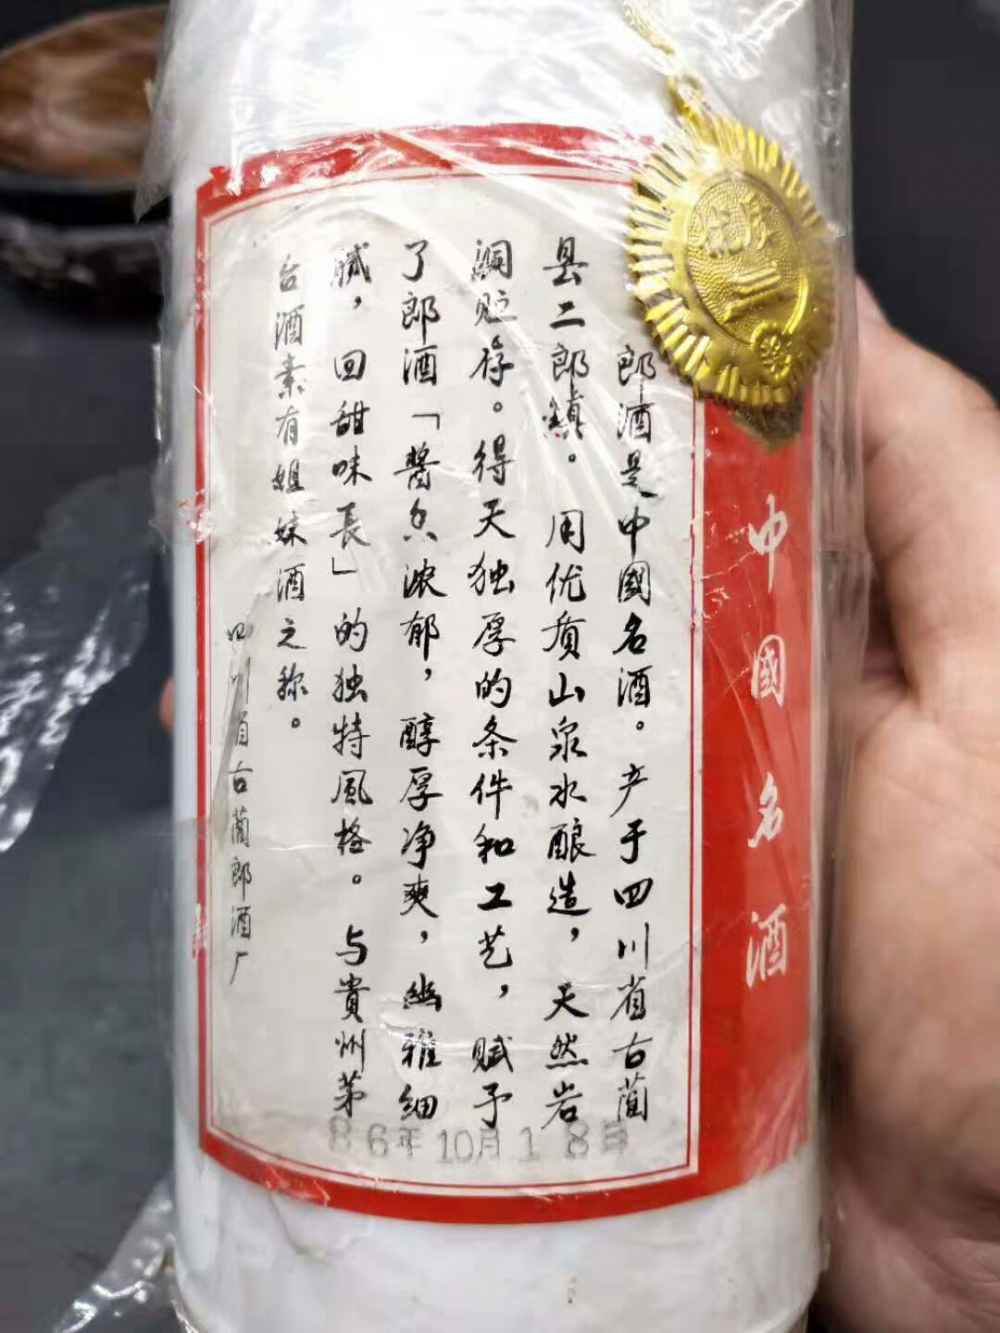 中國名酒
郎酒是中國名酒。产于四川省古蔺
县二郎鎮。用优质山泉水酿造，天然岩
洞贮存。得天独厚的条件和工艺，赋予
了郎酒「醬香浓郁，醇厚净爽，幽雅细
腻，回甜味長」的独特風格。与貴州茅
台酒素有姐妹酒之称。
四川省古蔺郎酒厂
86年10月18日